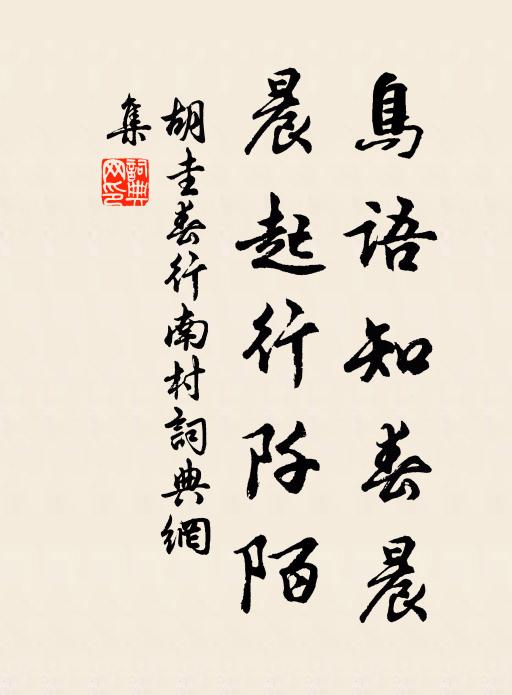 鳥語知春晨
晨起行阡陌
胡奎春行南村詞典網
集
詞典
网印